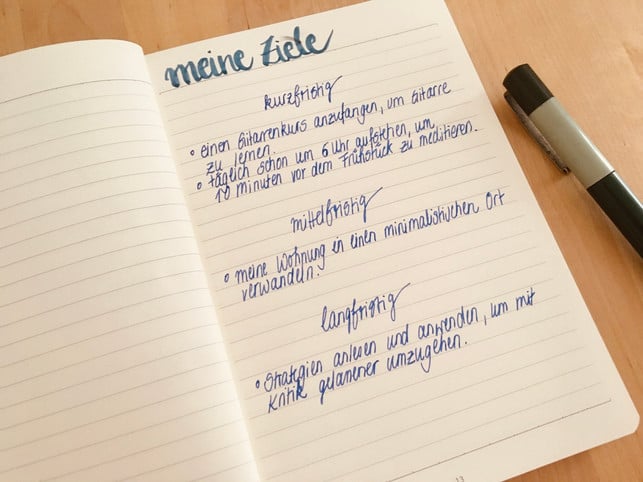 meine Ziele
kurzfristig
• einen Gitarrenkurs anzufangen, um Gitarre
zu lernen.
• täglich schon um 6 Uhr aufstehen, um
10 minuten vor dem Frühstück zu meditieren.
mittelfristig
• meine Wohnung in einen minimalistischen Ort
verwandeln.
langfristig
• Strategien anlesen und anwenden, um mit
Kritik gelassener umzugehen.